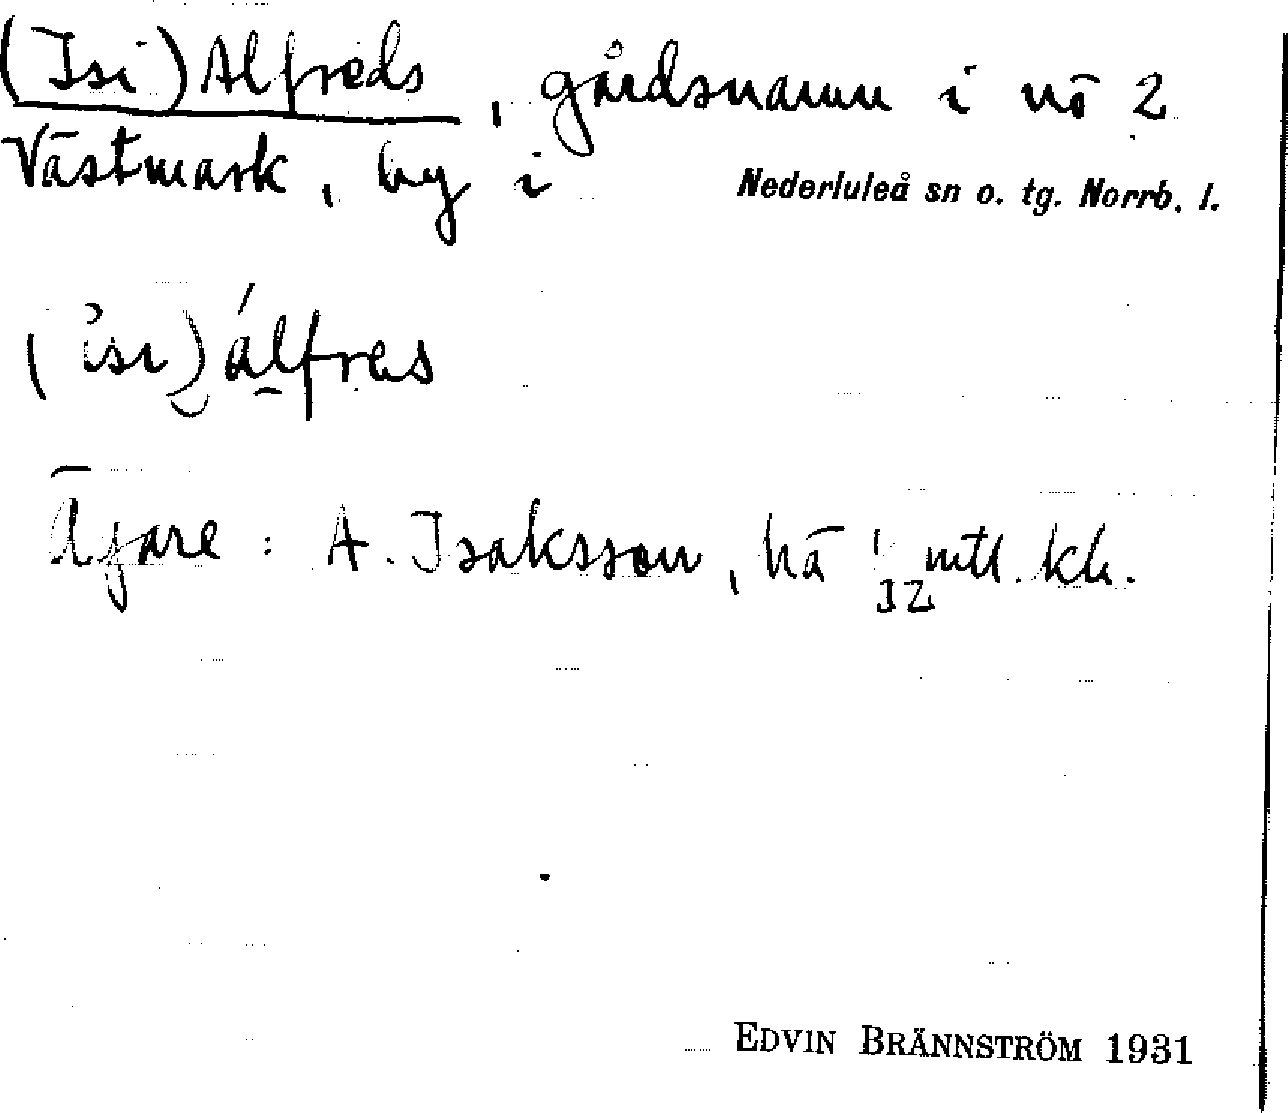 (Isi)Alfreds, gårdsnamn i nö 2
Västmark, by i Nederluleå sn o. tg. Norrb. l.
(ìsi)álfres
Ägare: A. Isaksson, hä 1/32 mtl. kh.
EDVIN BRÄNNSTRÖM 1931